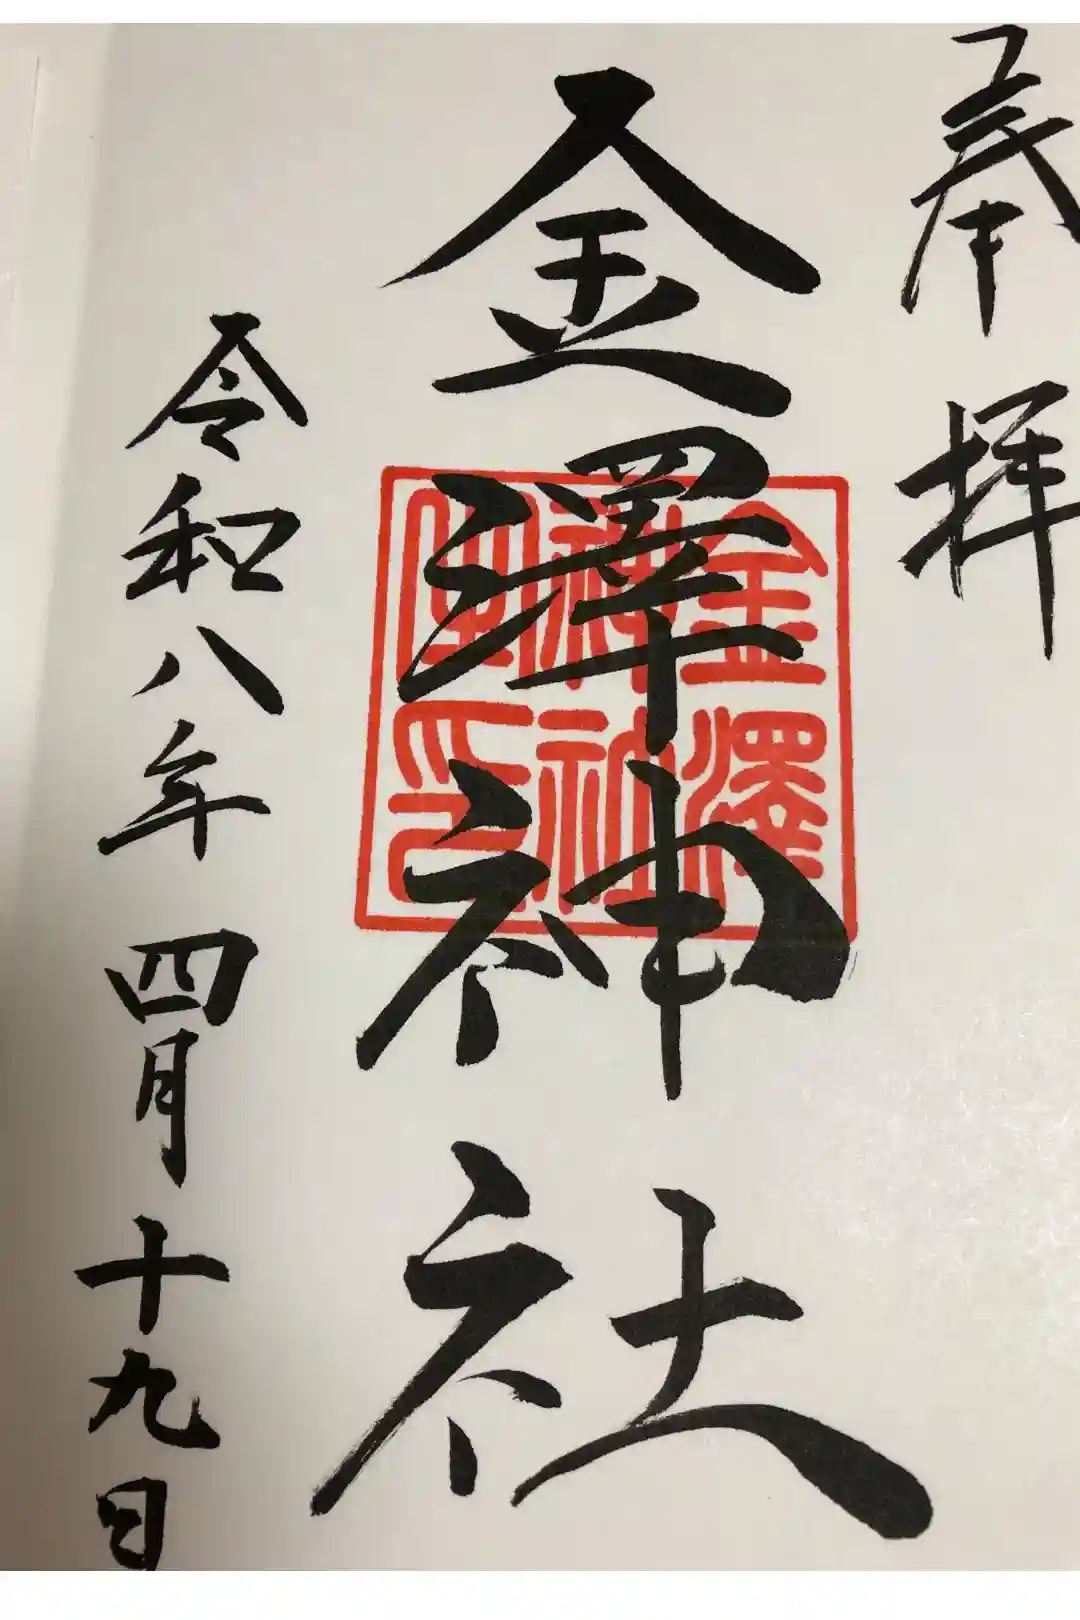 奉拝
金澤神社
金澤
神社
宝印
令和八年四月十九日